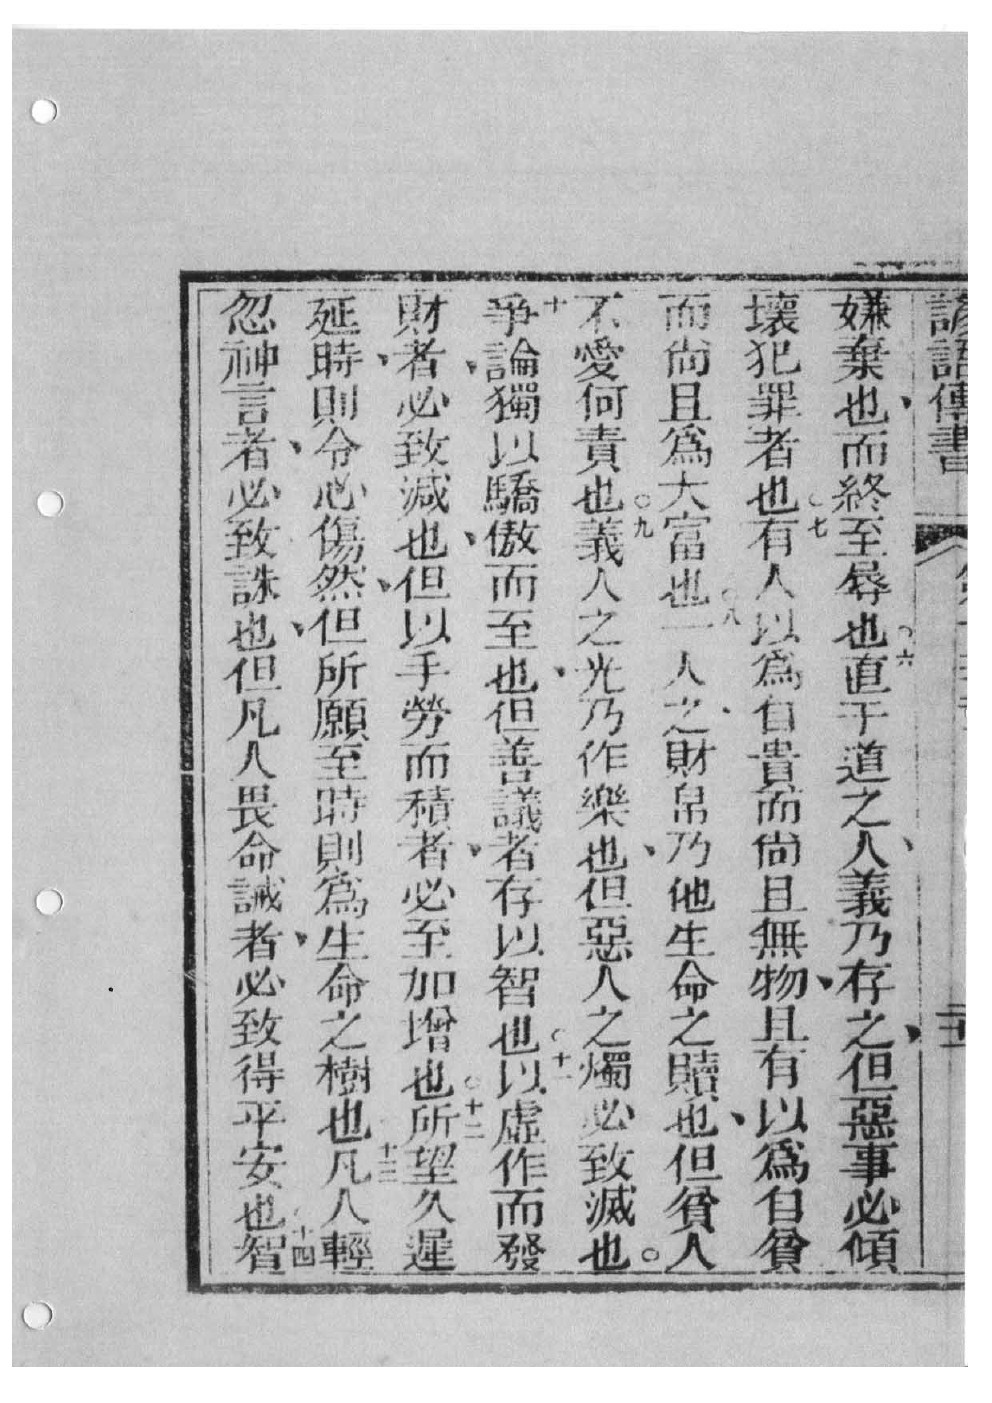 諺語傳書
嫌棄也、而終至辱也○六直于道之人、義乃存之、但惡事必傾
壞犯罪者也○七有人以爲自貴而尙且無物、且有以爲自貧
而尙且爲大富也○八一人之財帛乃他生命之贖也、但貧人
不愛何責也○九義人之光乃作樂也、但惡人之燭必致滅也○
十爭論、獨以驕傲而至也、但善議者存以智也○十一以虛作而發
財者、必致減也、但以手勞而積者、必至加增也○十二所望久遲
延時、則令心傷然、但所願至時則爲生命之樹也十三凡人輕
忽神言者、必致誅也、但凡人畏命誡者、必致得平安也○十四智